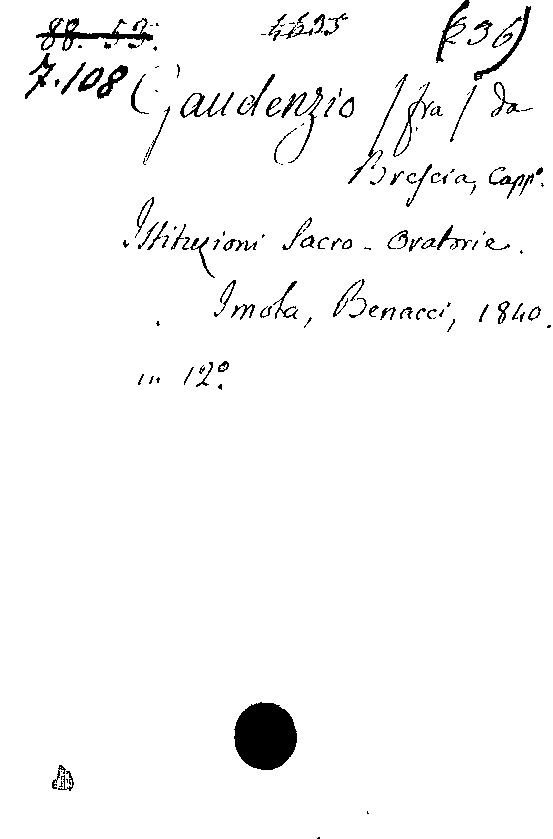 88. 53. 4635 (236)
7.108 Gaudenzio / fra / da
Brescia, Capp.º
Istituzioni Sacro-Oratorie.
Imola, Benacci, 1840.
in 12º